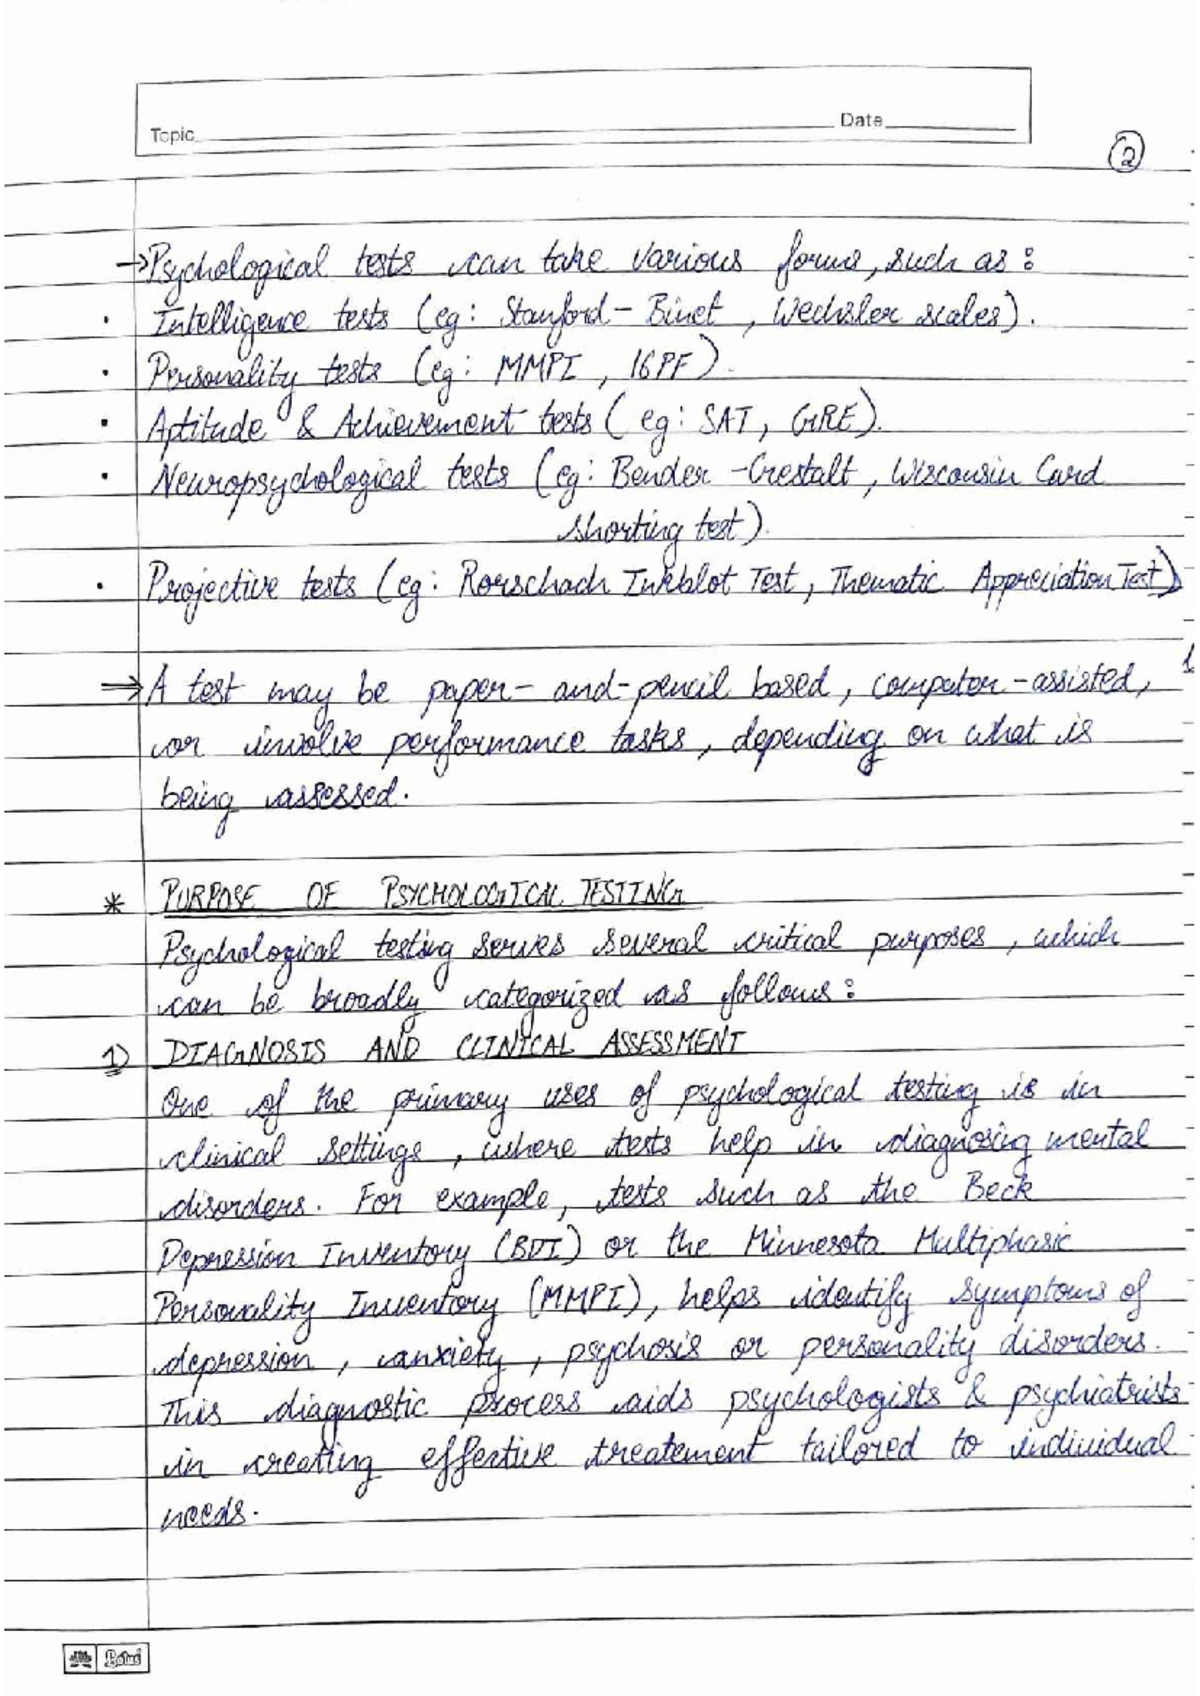 Topic Date
2
→Psychological tests can take various forms, such as :
· Intelligence tests (eg: Stanford - Binet , Wechsler scales).
· Personality tests (eg: MMPI , 16PF).
· Aptitude & Achievement tests ( eg: SAT, GRE).
· Neuropsychological tests (eg: Bender -Gestalt, Wisconsin Card
Shorting test).
· Projective tests (eg: Rorschach Inkblot Test, Thematic Appreciation Test)
⇒ A test may be paper- and-pencil based, computer-assisted,
or involve performance tasks, depending on what is
being assessed.
* PURPOSE OF PSYCHOLOGICAL TESTING
Psychological testing serves several critical purposes, which
can be broadly categorized as follows:
1) DIAGNOSIS AND CLINICAL ASSESSMENT
One of the primary uses of psychological testing is in
clinical settings, where tests help in diagnosing mental
disorders. For example, tests such as the Beck
Depression Inventory (BDI) or the Minnesota Multiphasic
Personality Inventory (MMPI), helps identify symptoms of
depression, anxiety, psychosis or personality disorders.
This diagnostic process aids psychologists & psychiatrists
in creating effective treatement tailored to individual
needs.
Lotus